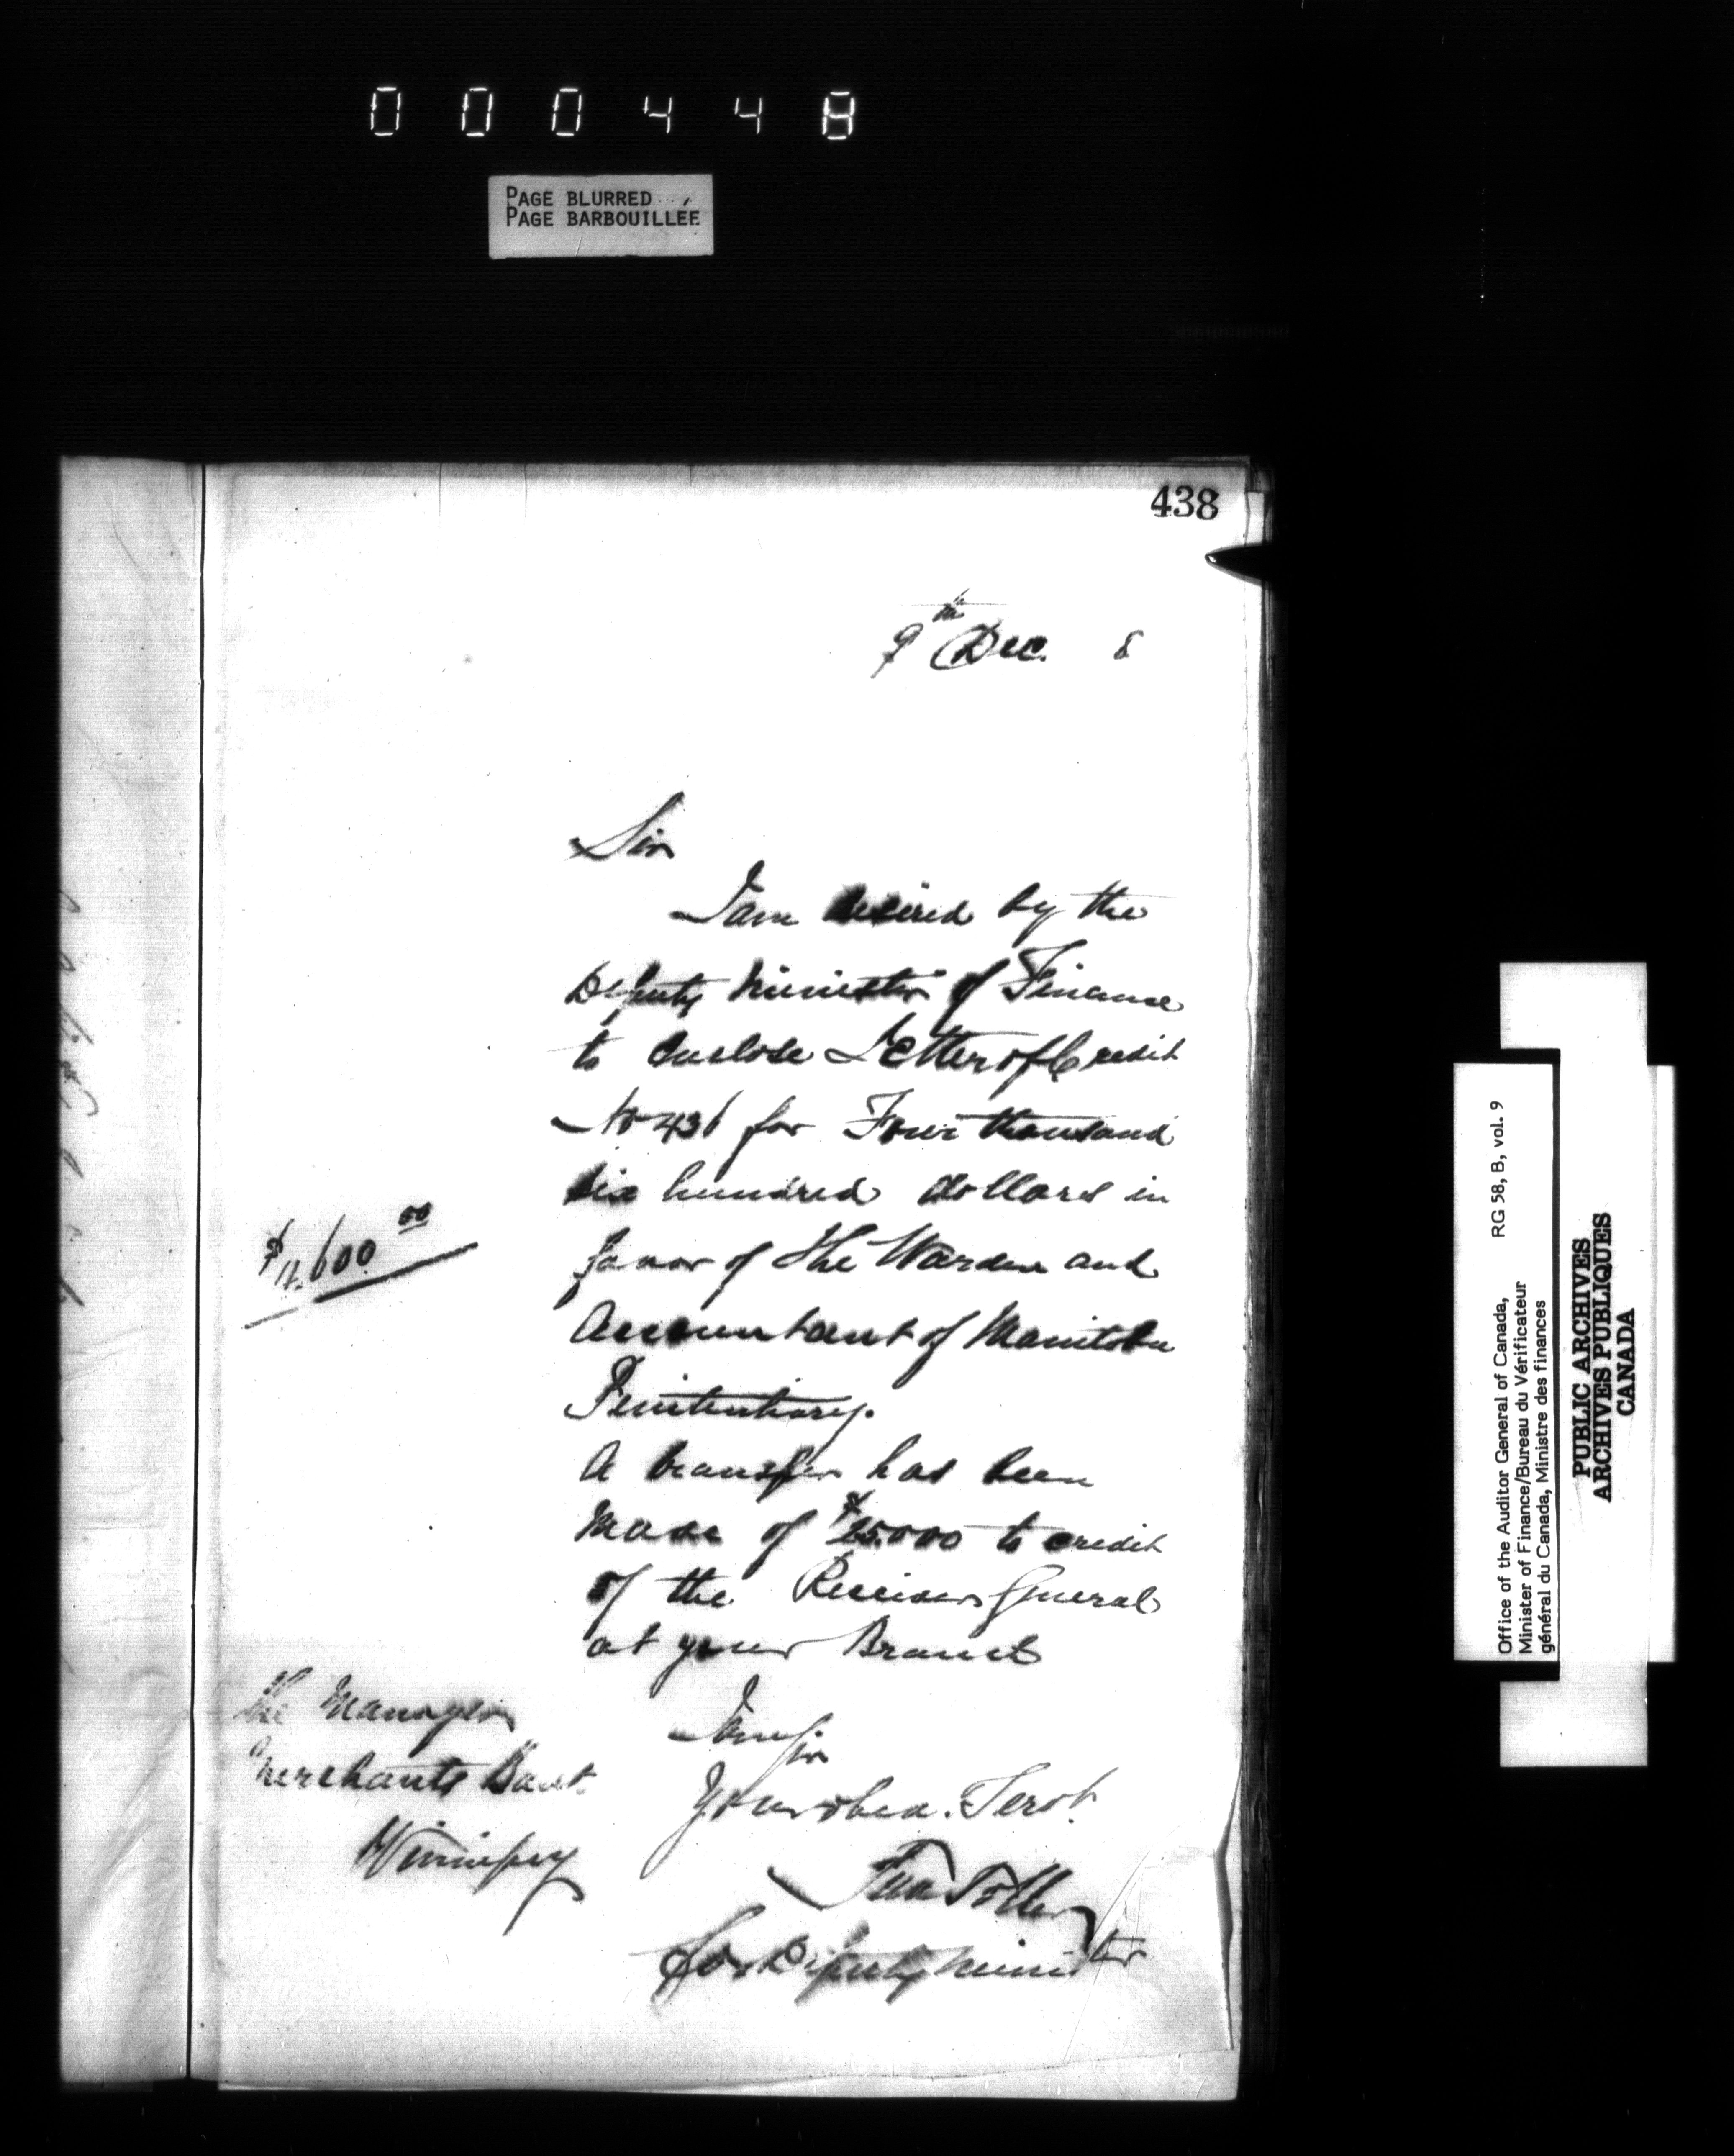 000448
PAGE BLURRED
PAGE BARBOUILLÉE
438
9th Dec. 8
Sir
I am desired by the
Deputy Minister of Finance
to enclose Letter of Credit
No 436 for Four thousand
six hundred dollars in
favor of the Warden and
Accountant of Manitoba
Penitentiary.
$4.600 00
A transfer has been
made of $25.000 to credit
of the Receiver General
at your Branch
I am Sir
Your obed. Servt.
Toller
for Deputy Minister
The Manager
Merchants Bank
Winnipeg
Office of the Auditor General of Canada, RG 58, B, vol. 9
Minister of Finance/Bureau du Vérificateur
général du Canada, Ministre des finances
PUBLIC ARCHIVES
ARCHIVES PUBLIQUES
CANADA